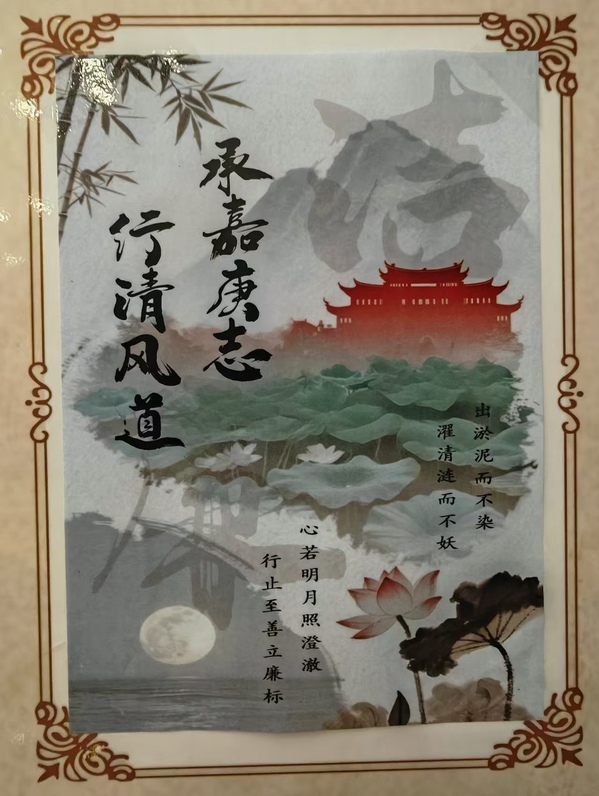 承嘉庚志
行清风道
出淤泥而不染
濯清涟而不妖
心若明月照澄澈
行止至善立廉标